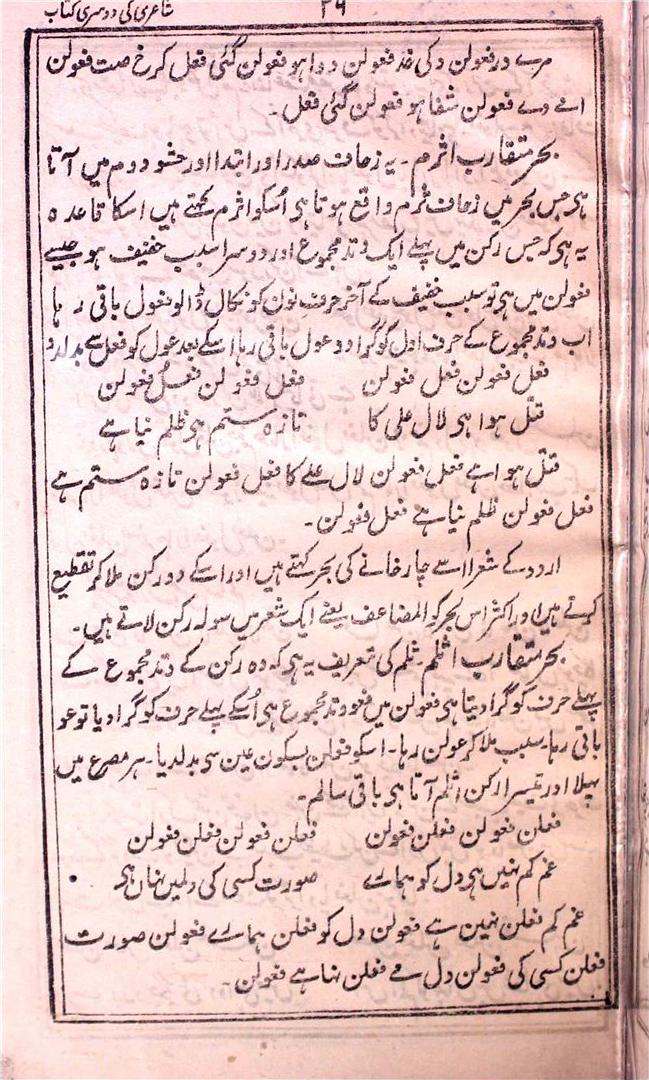 شاعری کی دوسری کتاب
۳۶
مرے در فعولن د کی غذ فعولن دوا ہو فعولن گئی فعل کرخ صت فعولن
اے دے فعولن شفا ہو فعولن گئی فعل ۔
بحر متقارب اثرم ۔ یہ زحاف صدر اور ابتدا اور حشو دوم میں آتا
ہی جس بحر میں زحاف ثرم واقع ہوتا ہی اُسکو اثرم کہتے ہیں اسکا قاعدہ
یہ ہی کہ جس رکن میں پہلے ایک وتد مجموع اور دوسرا سبب خفیف ہو جیسے
فعولن میں ہی تو سبب خفیف کے آخر حرف نون کو نکال ڈالو فعول باقی رہا
اب وتد مجموع کے حرف اول کو گرا دو عول باقی رہا اسکے بعد عول کو فعل سے بدلدو
فعل فعولن فعل فعولن فعل فعولن فعل فعولن
قتل ہوا ہی لال علی کا تازہ ستم ہی ظلم نیا ہے
قتل ہوا ہے فعل فعولن لال علے کا فعل فعولن تازہ ستم ہے
فعل فعولن ظلم نیا ہے فعل فعولن ۔
اردو کے شعرا اسے چار خانے کی بحر کہتے ہیں اور اسکے دو رکن ملا کر تقطیع
کرتے ہیں اور اکثر اس بحر کو المضاعف یعنے ایک شعر میں سولہ رکن لاتے ہیں ۔
بحر متقارب اثلم ثلم کی تعریف یہ ہی کہ وہ رکن کے وتد مجموع کے
پہلے حرف کو گرا دیتا ہی فعولن میں فعو وتد مجموع ہی اُسکے پہلے حرف کو گرا دیا تو عو
باقی رہا ۔ سبب ملا کر عولن رہا ۔ اسکو فعلن بسکون عین سی بدلدیا ۔ ہر مصرع میں
پہلا اور تیسرا رکن اثلم آتا ہی باقی سالم ۔
فعلن فعولن فعلن فعولن فعلن فعولن فعلن فعولن
غم کم نہیں ہی دل کو ہمارے صورت کسی کی دلمیں نہاں ہی
غم کم فعلن نہیں ہے فعولن دل کو فعلن ہمارے فعولن صورت
فعلن کسی کی فعولن دل مے فعلن نہا ہے فعولن ۔